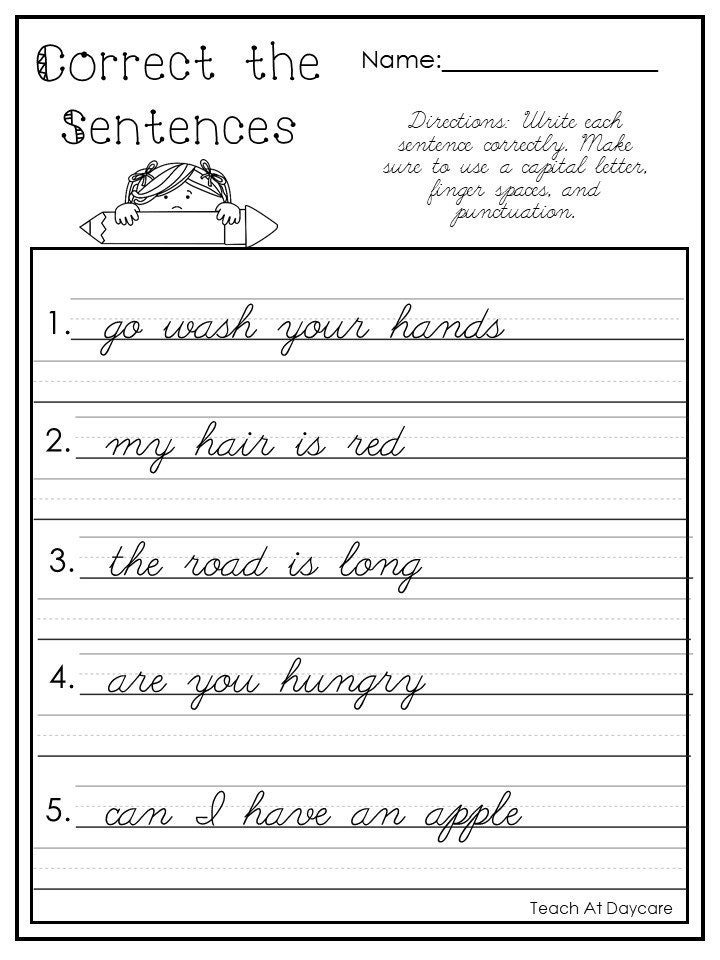 Correct the
Sentences
Name:
Directions: Write each
sentence correctly. Make
sure to use a capital letter,
finger spaces, and
punctuation.
1. go wash your hands
2. my hair is red
3. the road is long
4. are you hungry
5. can I have an apple
Teach At Daycare